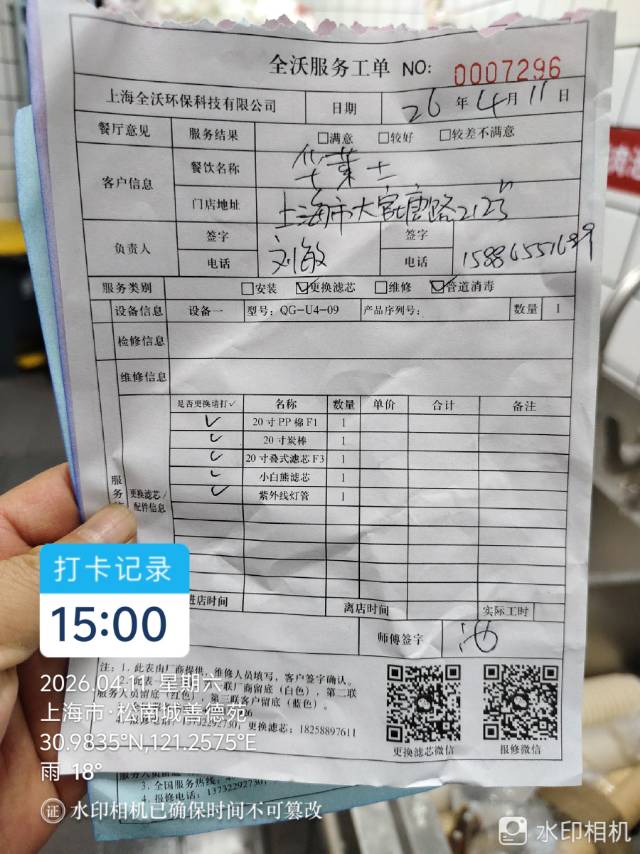 全沃服务工单 NO: 0007296
上海全沃环保科技有限公司 日期 26 年 4 月 11 日
餐厅意见 服务结果 □满意 □较好 □较差不满意
客户信息 餐饮名称 华莱士
门店地址 上海市大富路2125
负责人 签字 刘敏 签字
电话 电话
服务类别 □安装 ☑更换滤芯 □维修 ☑管道消毒
设备信息 设备一 型号: QG-U4-09 产品序列号: 数量 1
检修信息
维修信息
是否更换请打✓ 名称 数量 单价 合计 备注
✓ 20 寸 PP 棉 F1 1
✓ 20 寸炭棒 1
✓ 20 寸叠式滤芯 F3 1
✓ 小白熊滤芯 1
✓ 紫外线灯管 1
服务
更换滤芯/
配件信息
进店时间 离店时间 实际工时
师傅签字
注: 1、此表由厂商提供、维修人员填写，客户签字确认。
联厂商留底（白色），第二联
服务人员留底（红色），第三联客户留底（蓝色）。
更换滤芯: 18258897611
更换滤芯微信 报修微信
3、全国服务热线:
4、报修电话: 13732292730,
打卡记录
15:00
2026.04.11 星期六
上海市·松南城善德苑
30.9835°N,121.2575°E
雨 18°
证 水印相机已确保时间不可篡改
水印相机